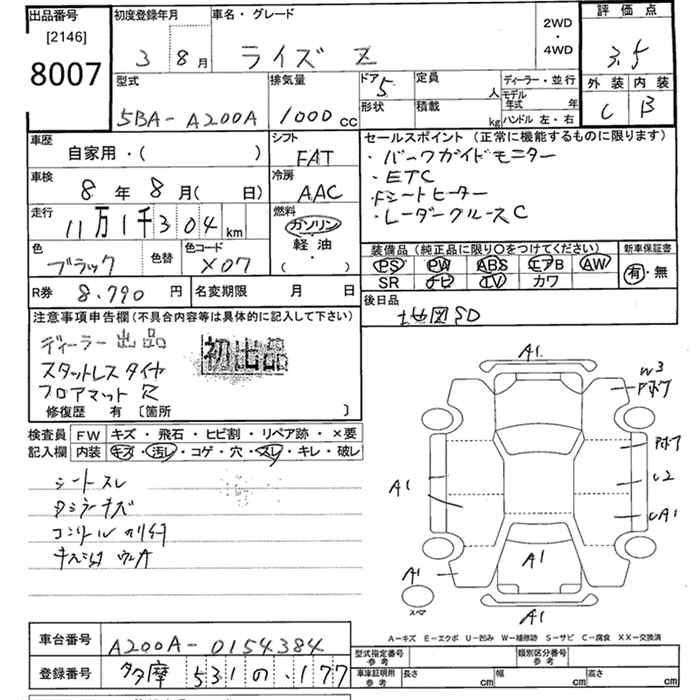 出品番号
[2146]
8007
初度登録年月
3年 8月
車名・グレード
ライズ Z
2WD
・
4WD
評価点
3.5
外装 内装
C B
型式
5BA-A200A
排気量
1000 cc
ドア 5
形状
定員 人
積載 kg
ディーラー・並行
モデル年式 年
ハンドル 左・右
車歴
自家用・( )
シフト
FAT
車検
8年 8月( 日)
冷房
AAC
走行
11万1千304 km
燃料
ガソリン
軽油
( )
色
ブラック
色替
色コード
X07
R券 8.790 円
名変期限 月 日
セールスポイント (正常に機能するものに限ります)
・パークガイドモニター
・ETC
・Fシートヒーター
・レーダークルーズC
装備品(純正品に限り〇をつけてください)
PS PW ABS エアB AW
SR ナビ TV カワ
新車保証書
有・無
後日品
地図SD
注意事項申告欄(不具合内容等は具体的に記入して下さい)
ディーラー出品
初出品
スタットレスタイヤ
フロアマット 穴
修復歴 有 〔箇所 〕
検査員 FW キズ・飛石・ヒビ割・リペア跡・×要
記入欄 内装 キズ・汚レ・コゲ・穴・スレ・キレ・破レ
シートスレ
A1
W3
A1
U2
A1
A1
A1
A1
スペア
A-キズ E-エクボ U-凹み W-補修跡 S-サビ C-腐食 XX-交換済
車台番号 A200A-0154384
登録番号 多摩 531 の ・177
型式指定番号
参考
類別区分番号
参考
車庫証明用
参考
長さ cm
幅 cm
高さ cm